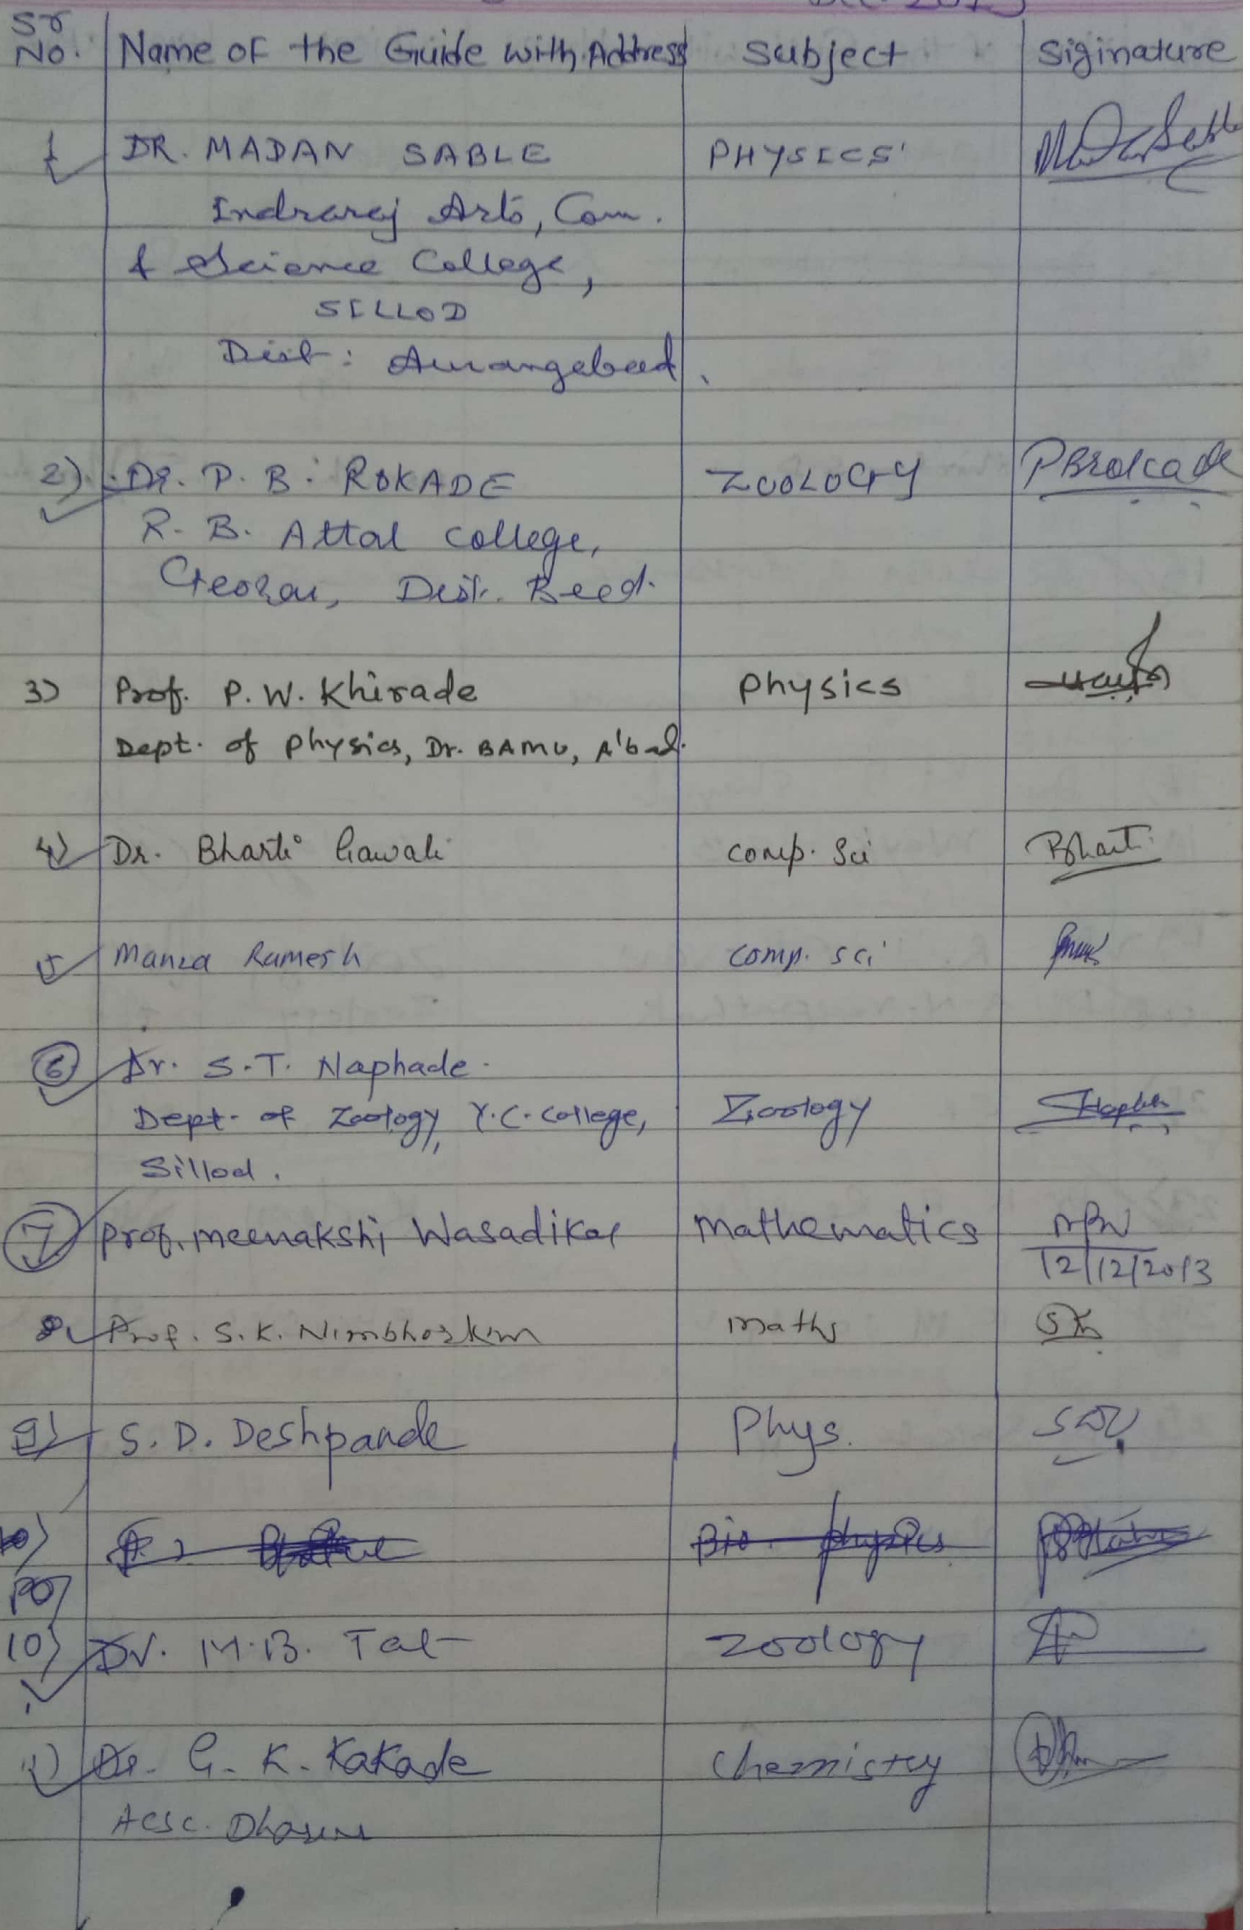 Dec 2013
Sr
No. Name of the Guide with Address Subject Siginature
1 DR. MADAN SABLE PHYSICS
Indraraj Arts, Com.
& Science College,
SILLOD
Dist: Aurangabad.
2) Dr. P. B. ROKADE ZOOLOGY PBRokade
R. B. Attal College,
Georai, Dist. Beed.
3) Prof. P. W. Khirade Physics
Dept. of Physics, Dr. BAMU, A'bad.
4) Dr. Bharti Gawali comp. Sci Bharti
5 Manza Ramesh comp. sci
6 Dr. S.T. Naphade.
Dept. of Zoology, Y.C. College, Zoology
Sillod.
7 Prof. meenakshi Wasadikar Mathematics
12/12/2013
8 Prof. S. K. Nimbhorkar maths SK
9) S. D. Deshpande Phys.
10) Bio physics
10)
10) Dr. M.B. Tat Zoology
11) Dr. G. K. Kakade Chemistry
ACSC.